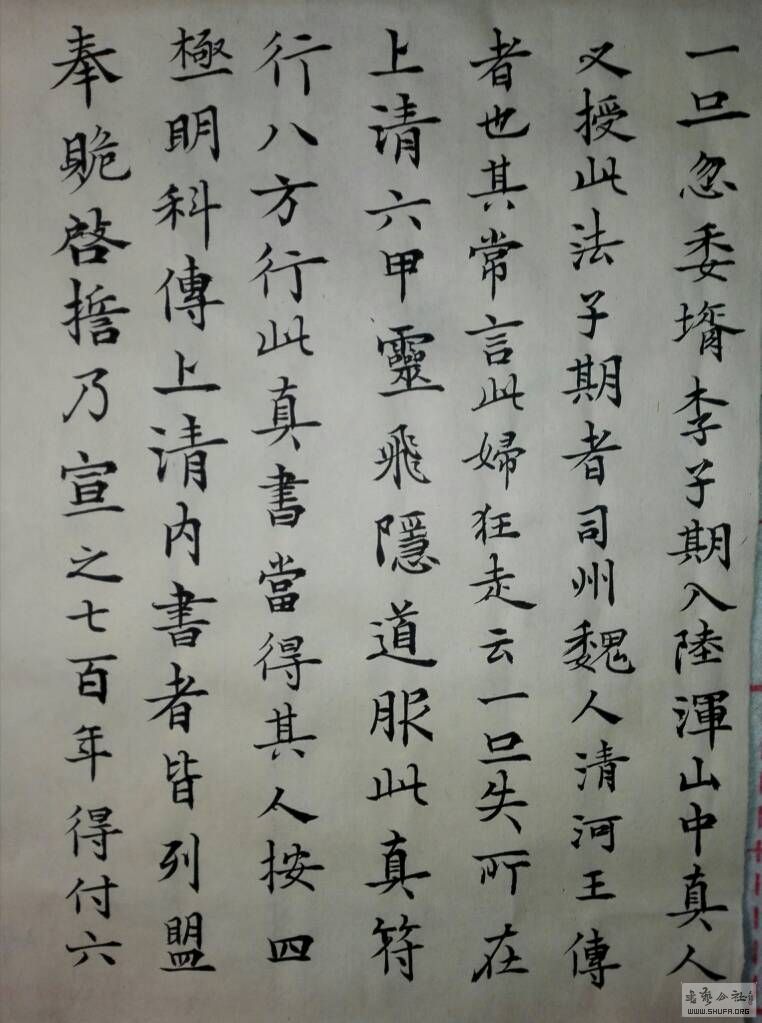 一旦忽委壻李子期入陸渾山中真人
又授此法子期者司州魏人清河王傳
者也其常言此婦狂走云一旦失所在
上清六甲靈飛隱道服此真符
行八方行此真書當得其人按四
極明科傳上清内書者皆列盟
奉跪啓誓乃宣之七百年得付六
WWW.SHUFA.ORG